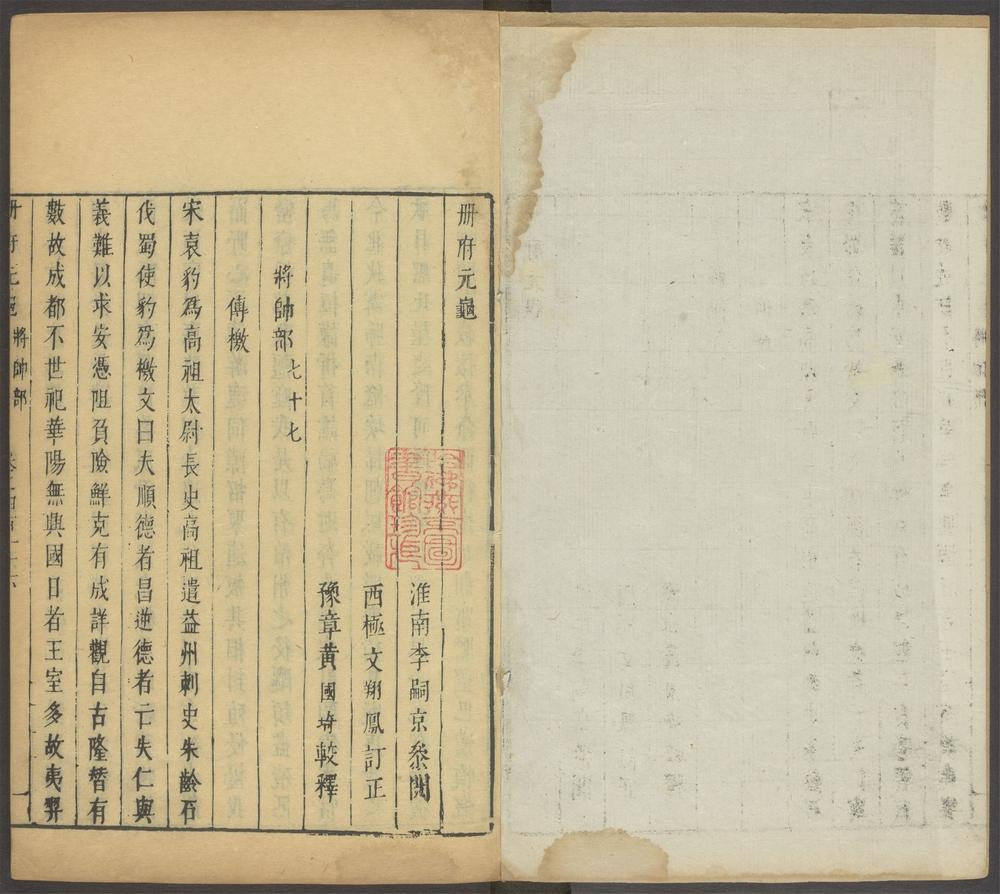 冊府元龜
淮南李嗣京叅閱
西極文翔鳳訂正
豫章黄國琦較釋
將帥部七十七
傳檄
宋袁豹爲高祖太尉長史高祖遣益州刺史朱齡石
伐蜀使豹爲檄文曰夫順德者昌逆德者亡失仁與
義難以求安憑阻負險鮮克有成詳觀自古隆替有
數故成都不世祀華陽無興國日者王室多故夷羿
冊府元龜 將帥部 卷之四百一十六 一
哈佛燕京圖書館珍藏